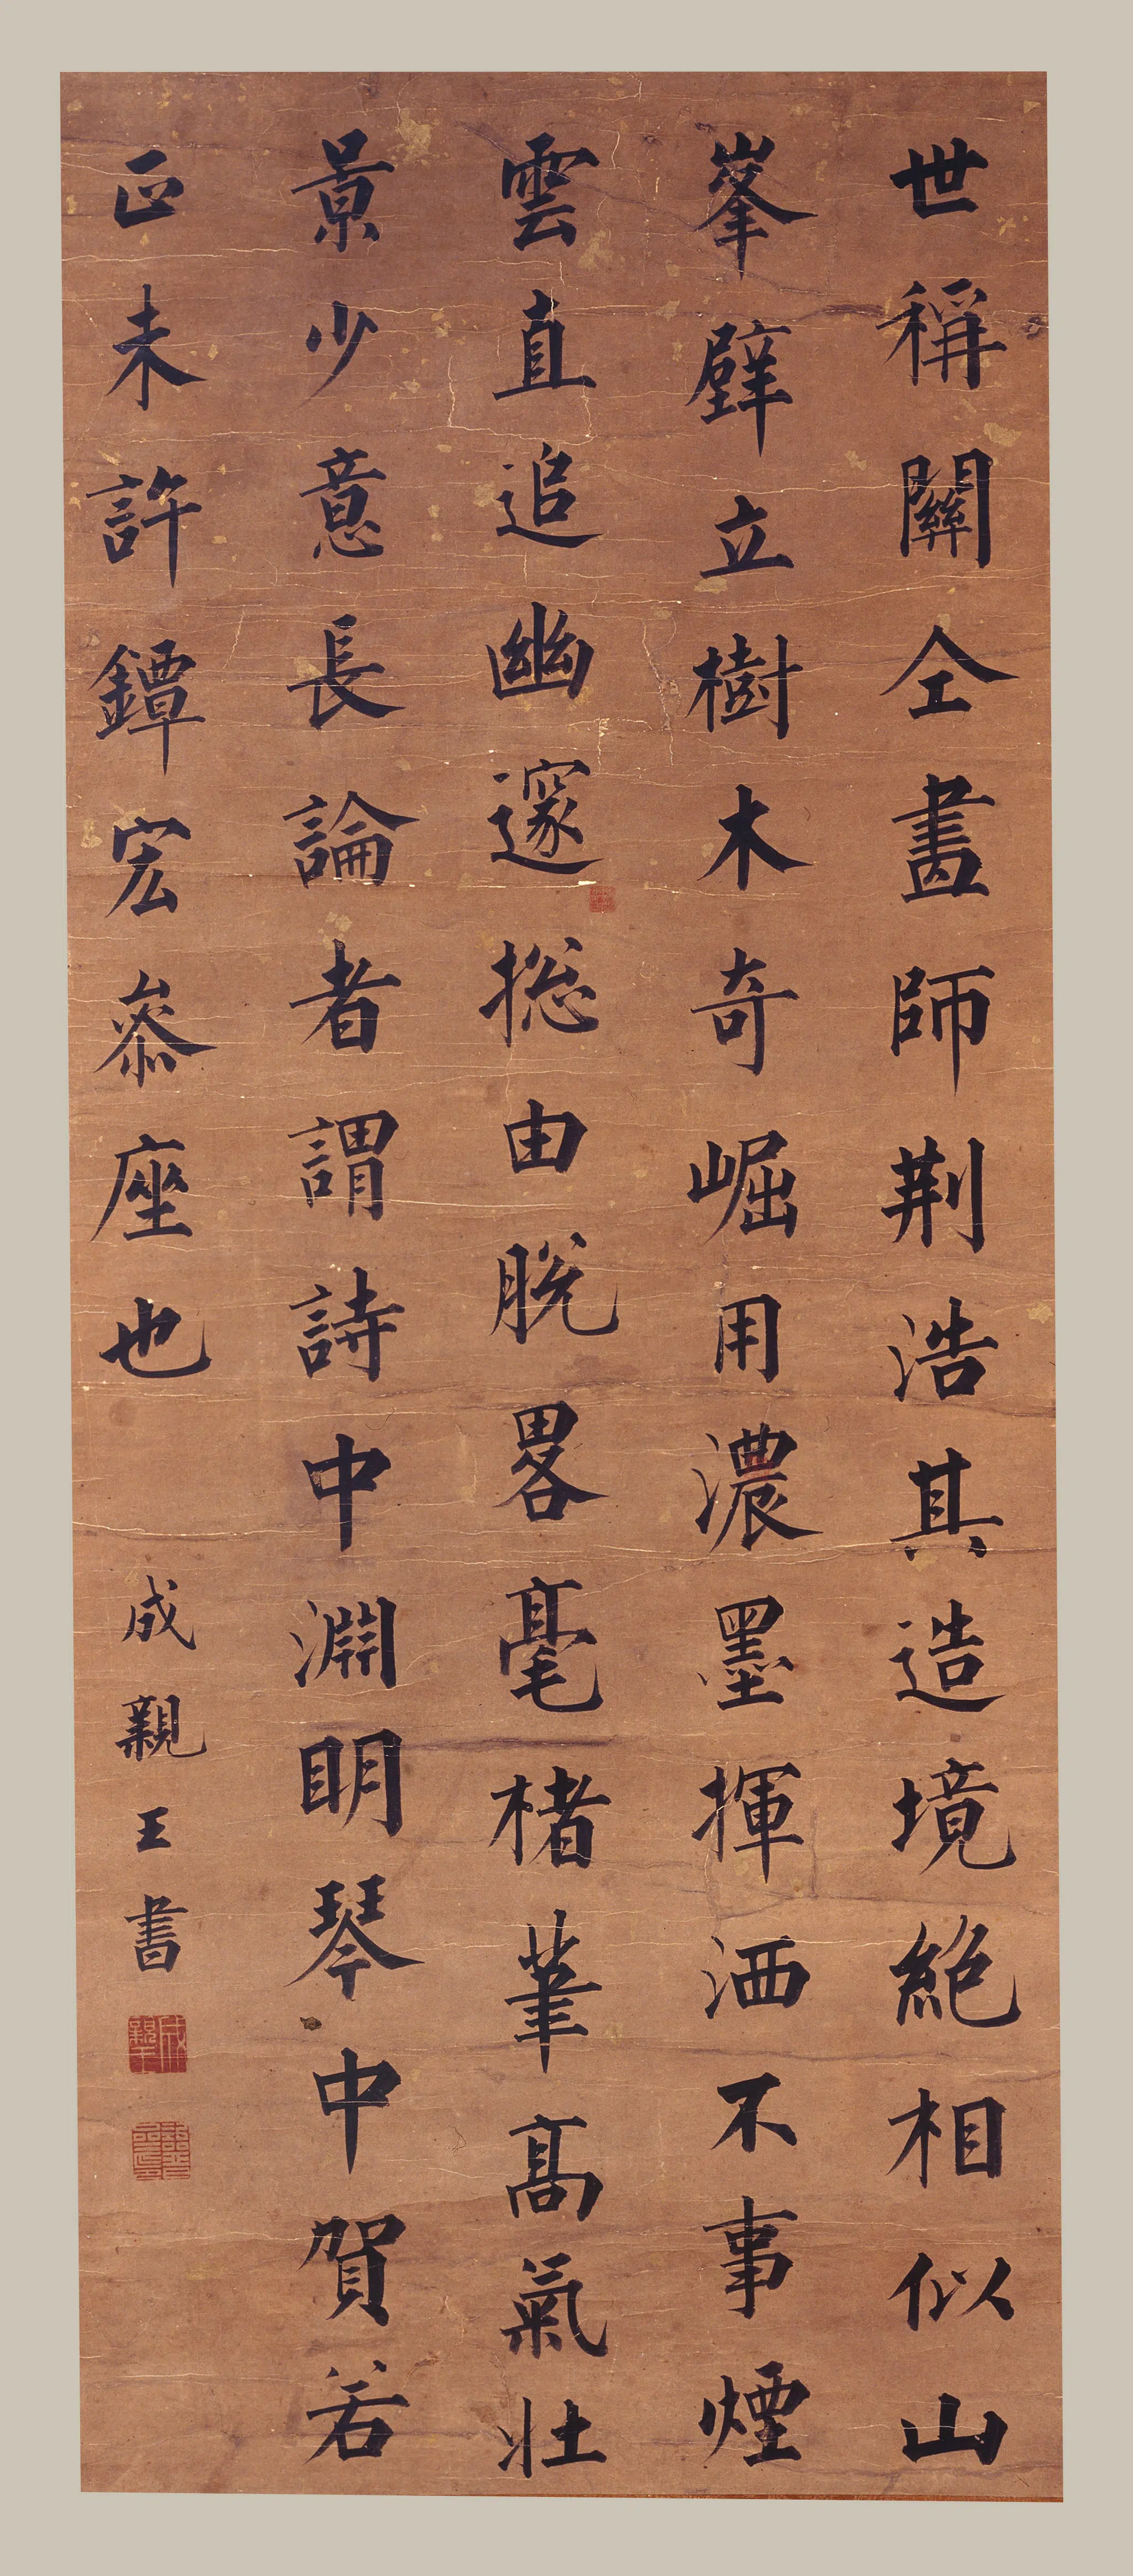 世稱關仝畫師荆浩其造境絕相似山
峯壁立樹木奇崛用濃墨揮洒不事煙
雲直追幽邃揔由脫畧毫楮筆高氣壯
景少意長論者謂詩中淵明琴中賀若
正未許鐔宏叅座也
成親王書
成親王